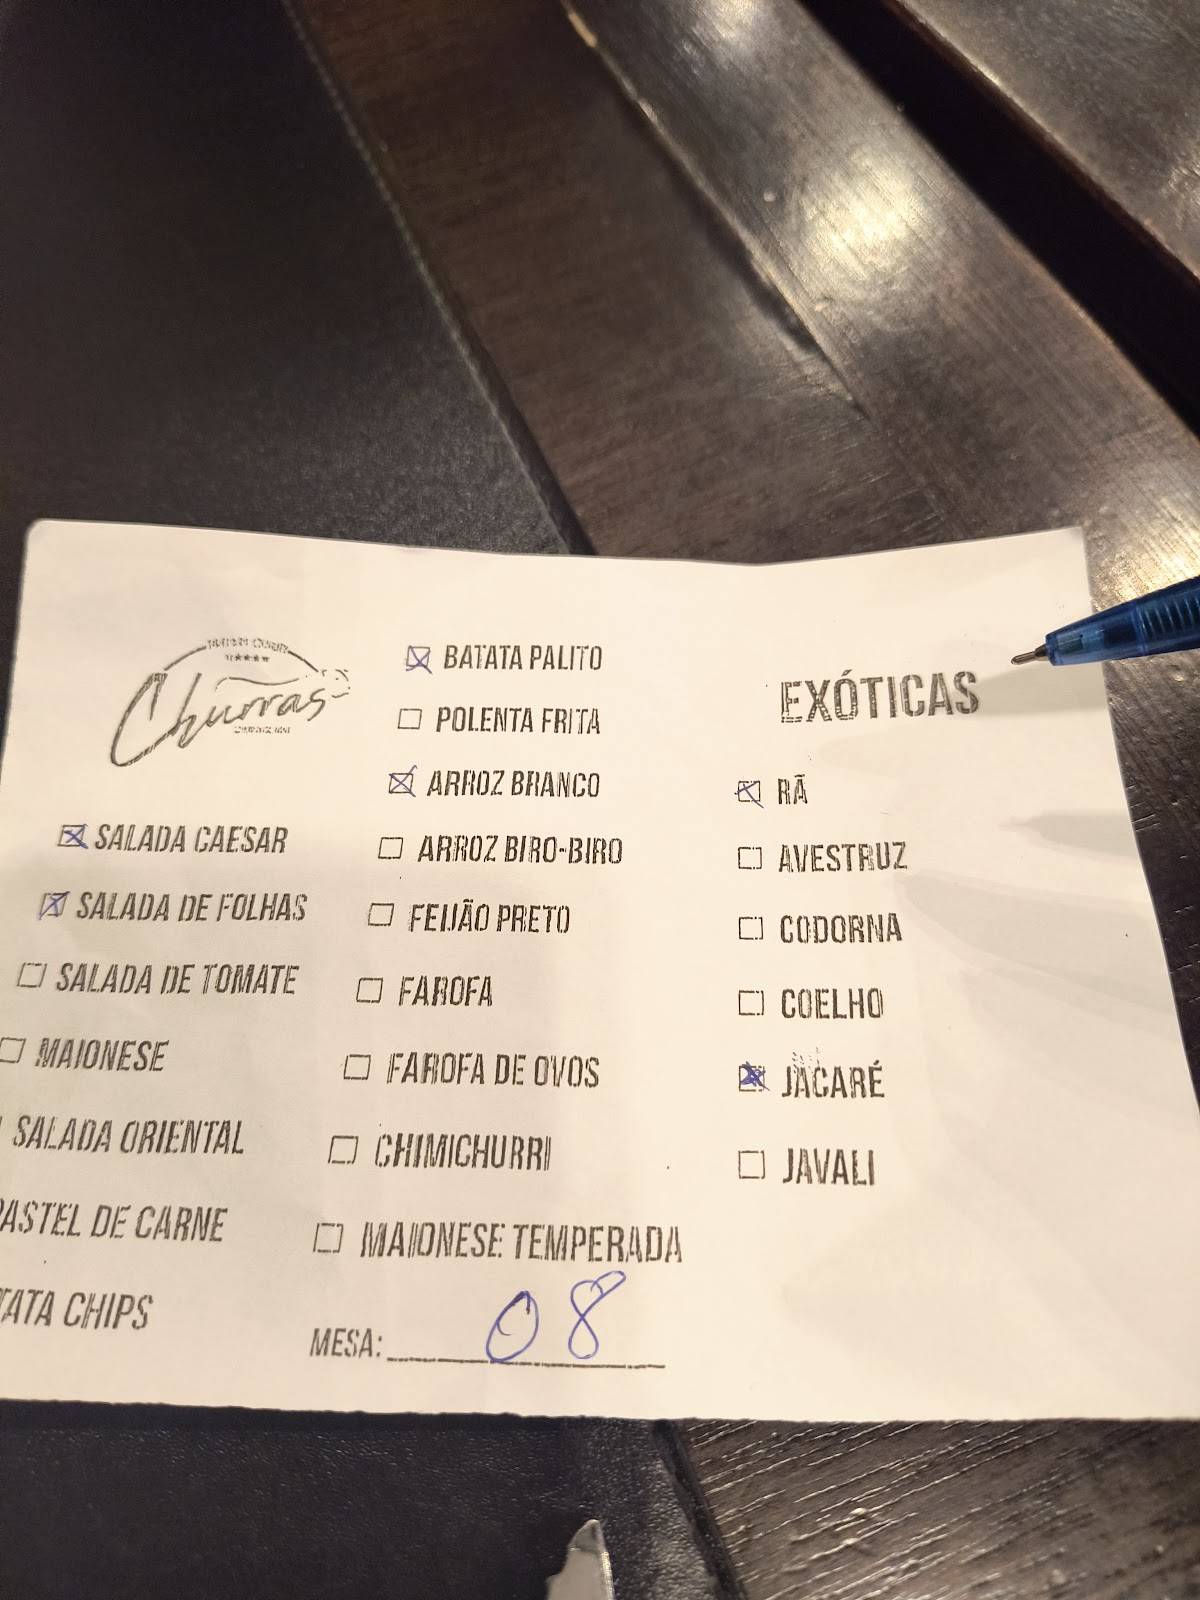 Churras
☒ SALADA CAESAR
☒ SALADA DE FOLHAS
☐ SALADA DE TOMATE
☐ MAIONESE
SALADA ORIENTAL
ASTEL DE CARNE
TATA CHIPS
☒ BATATA PALITO
☐ POLENTA FRITA
☒ ARROZ BRANCO
☐ ARROZ BIRO-BIRO
☐ FEIJÃO PRETO
☐ FAROFA
☐ FAROFA DE OVOS
☐ CHIMICHURRI
☐ MAIONESE TEMPERADA
MESA: 08
EXÓTICAS
☒ RÃ
☐ AVESTRUZ
☐ CODORNA
☐ COELHO
☒ JACARÉ
☐ JAVALI